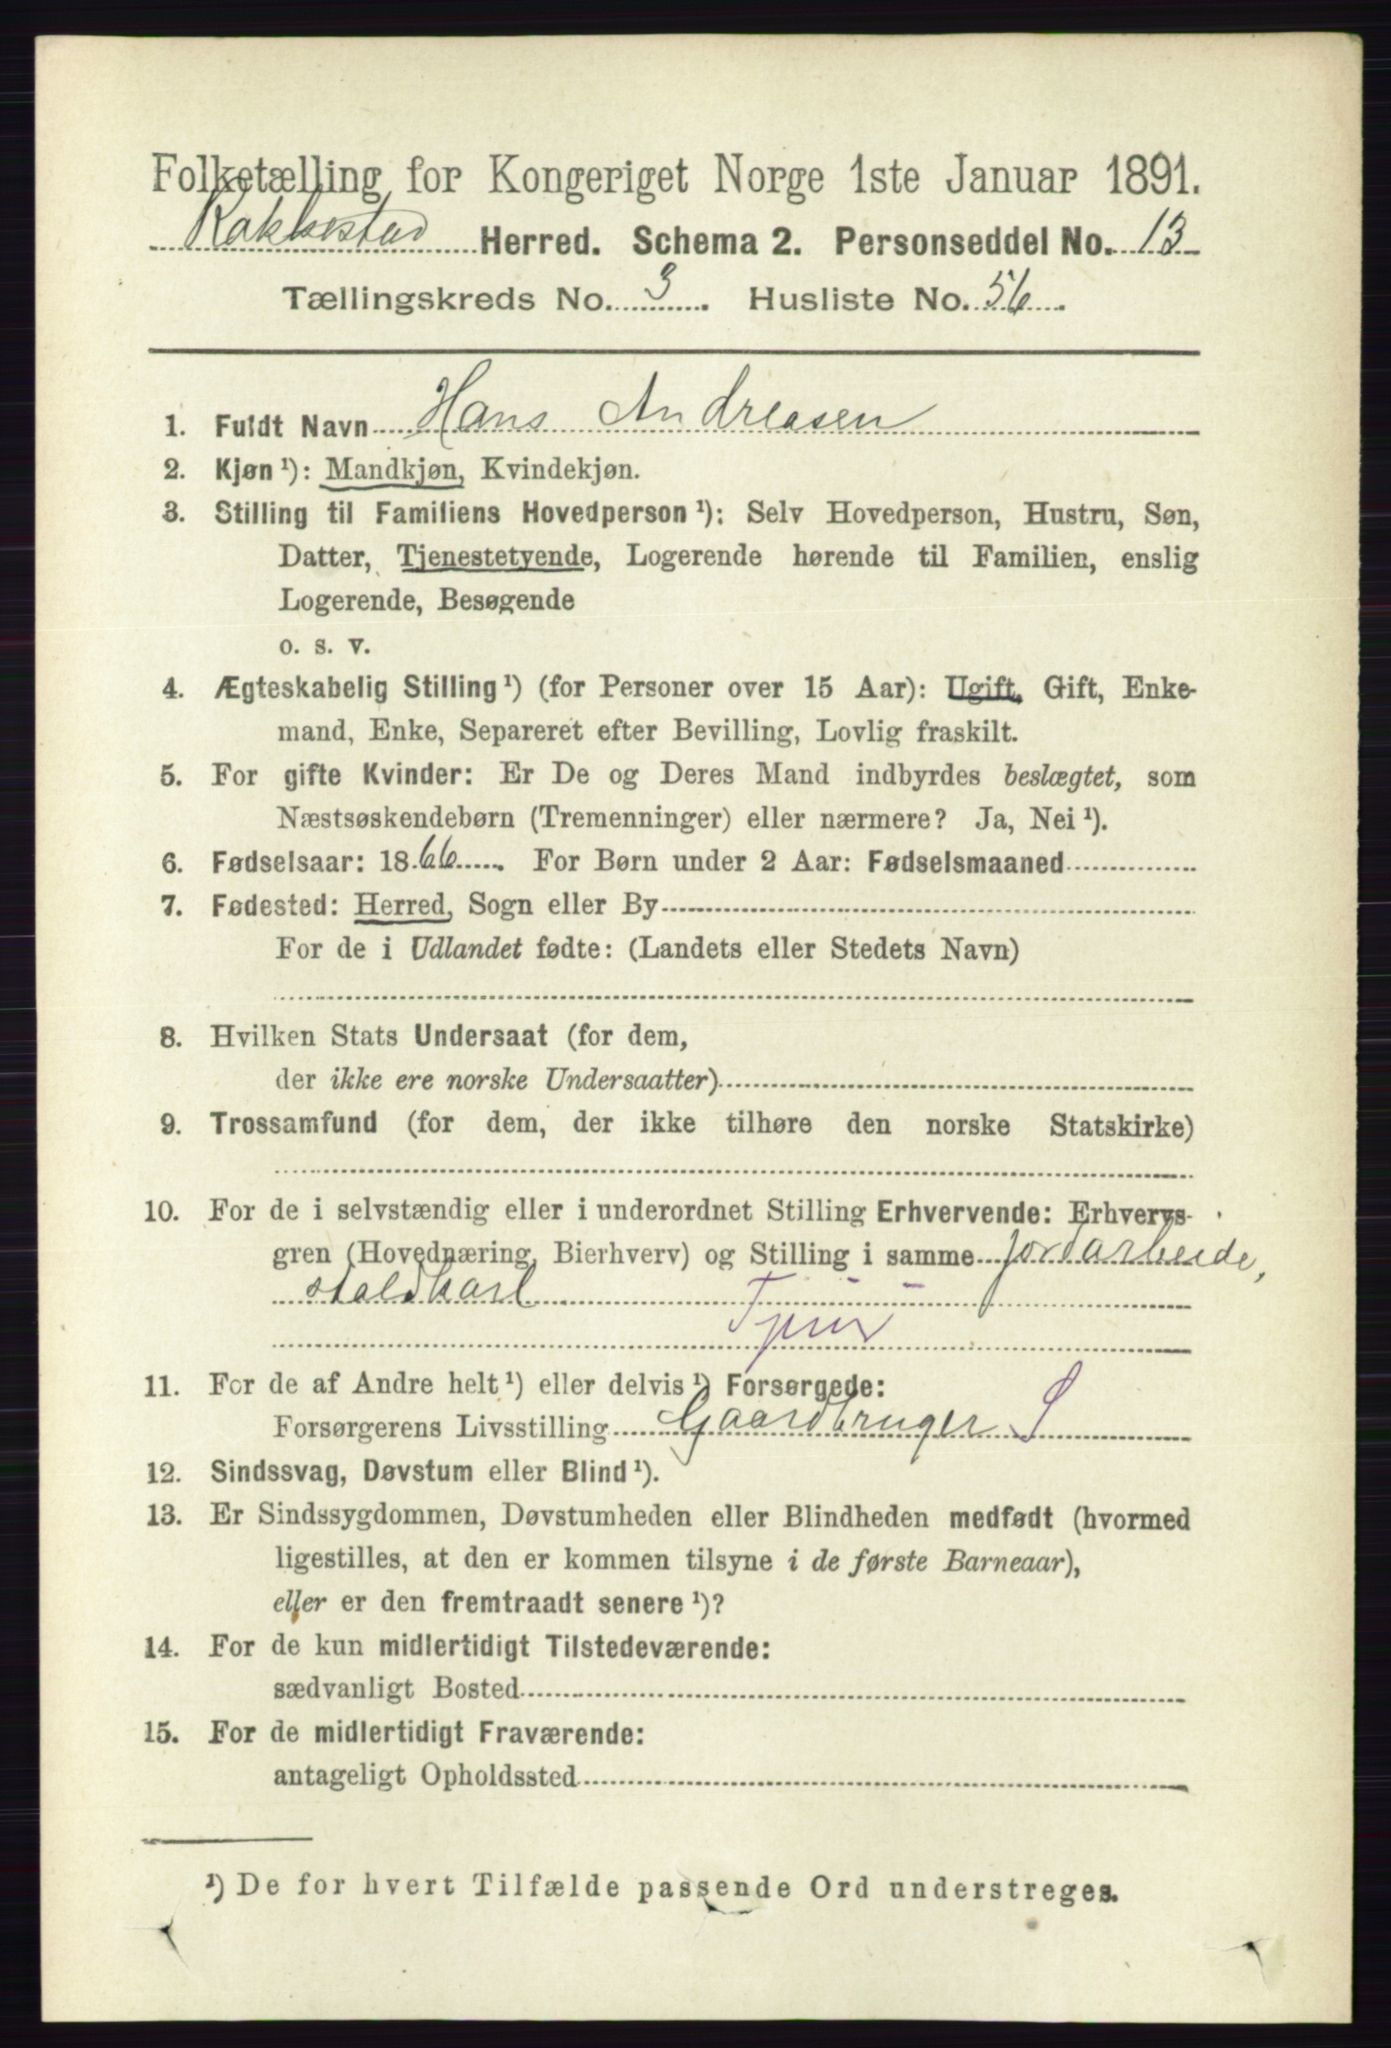 Folketælling for Kongeriget Norge 1ste Januar 1891.
Rakkestad Herred. Schema 2. Personseddel No. 13
Tællingskreds No. 3. Husliste No. 56.
1. Fuldt Navn Hans Andreasen
2. Kjøn¹): Mandkjøn, Kvindekjøn.
3. Stilling til Familiens Hovedperson¹): Selv Hovedperson, Hustru, Søn,
Datter, Tjenestetyende, Logerende hørende til Familien, enslig
Logerende, Besøgende
o. s. v.
4. Ægteskabelig Stilling¹) (for Personer over 15 Aar): Ugift, Gift, Enke-
mand, Enke, Separeret efter Bevilling, Lovlig fraskilt.
5. For gifte Kvinder: Er De og Deres Mand indbyrdes beslægtet, som
Næstsøskendebørn (Tremenninger) eller nærmere? Ja, Nei¹).
6. Fødselsaar: 1866. For Børn under 2 Aar: Fødselsmaaned
7. Fødested: Herred, Sogn eller By
For de i Udlandet fødte: (Landets eller Stedets Navn)
8. Hvilken Stats Undersaat (for dem,
der ikke ere norske Undersaatter)
9. Trossamfund (for dem, der ikke tilhøre den norske Statskirke)
10. For de i selvstændig eller i underordnet Stilling Erhvervende: Erhvervs-
gren (Hovednæring, Bierhverv) og Stilling i samme Jordarbeide,
staldkarl
11. For de af Andre helt¹) eller delvis¹) Forsørgede:
Forsørgerens Livsstilling Gaardbruger S
12. Sindssvag, Døvstum eller Blind¹).
13. Er Sindssygdommen, Døvstumheden eller Blindheden medfødt (hvormed
ligestilles, at den er kommen tilsyne i de første Barneaar),
eller er den fremtraadt senere¹)?
14. For de kun midlertidigt Tilstedeværende:
sædvanligt Bosted
15. For de midlertidigt Fraværende:
antageligt Opholdssted
¹) De for hvert Tilfælde passende Ord understreges.